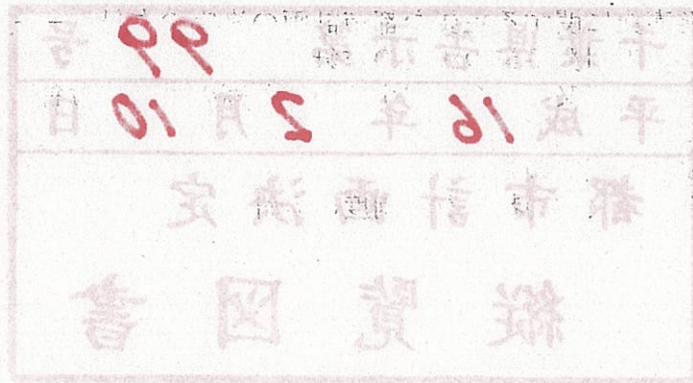 千葉県告示第 99 号
平成 16 年 2 月 10 日
都市計画決定
縦覧図書